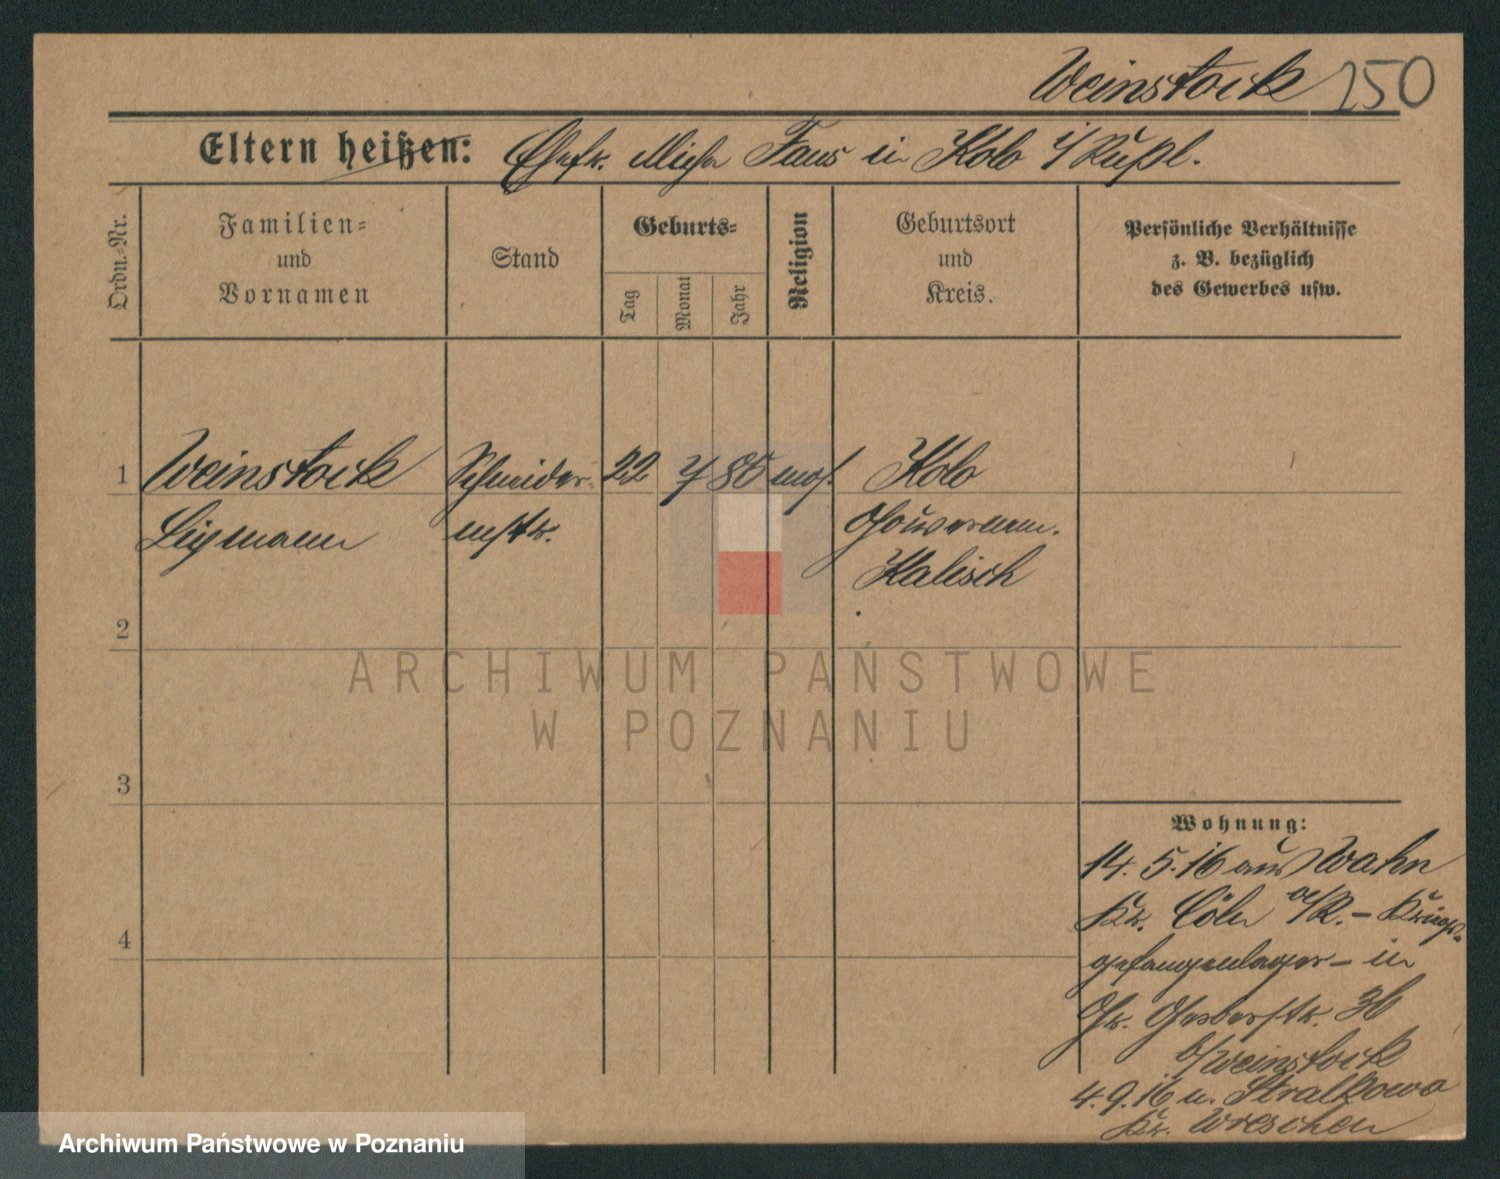 Weinstock 250
Eltern heißen: Ehefr. Micha Faus in Kolo i/Rußl.
Ordn.-Nr.
Familien-
und
Vornamen
Stand
Geburts-
Tag
Monat
Jahr
Religion
Geburtsort
und
Kreis.
Persönliche Verhältnisse
z. B. bezüglich
des Gewerbes usw.
1 Weinstock Schneider- 22 7 86 mos. Kolo
mstr. Gouvernem.
Kalisch
2
ARCHIWUM PAŃSTWOWE
W POZNANIU
3
Wohnung:
14. 5. 16 aus Wahn
Kr. Cöln a/R. - Kriegs-
gefangenlager - in
Gr. Gerberstr. 36
b/Weinstock
4. 9. 16 n. Stralkowo
Kr. Wreschen
4
Archiwum Państwowe w Poznaniu